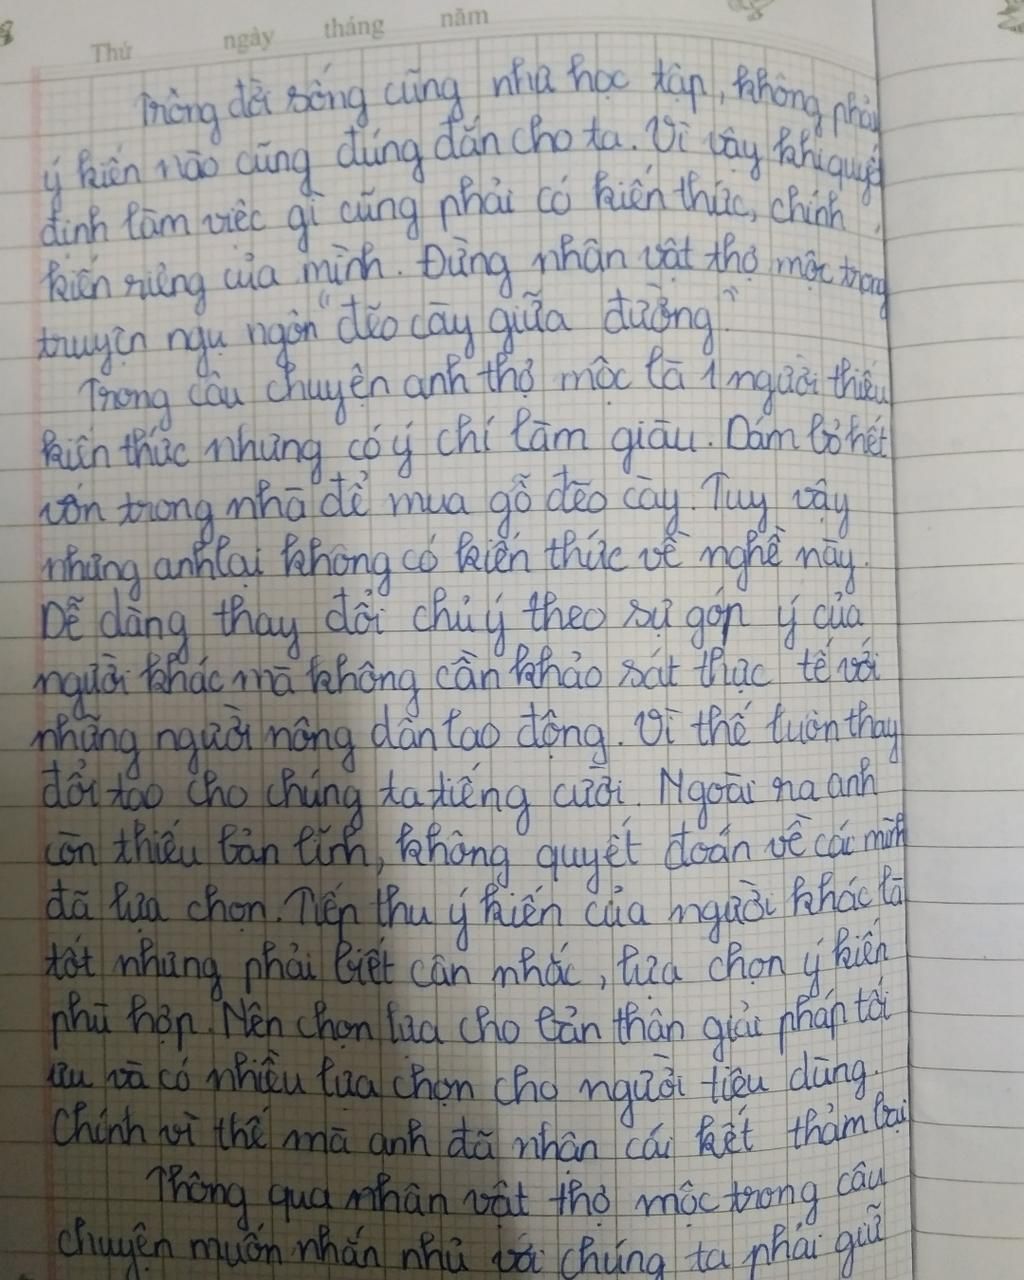 Thứ ngày tháng năm
Trong đời sống cũng như học tập, không phải
ý kiến nào cũng đúng đắn cho ta. Vì vậy khi quyết
định làm việc gì cũng phải có kiến thức, chính
kiến riêng của mình. Đừng nhân vật thợ mộc trong
truyện ngụ ngôn "đẽo cày giữa đường"
Trong câu chuyện anh thợ mộc là 1 người thiếu
kiến thức nhưng có ý chí làm giàu. Dám bỏ hết
vốn trong nhà để mua gỗ đẽo cày. Tuy vậy
nhưng anh lại không có kiến thức về nghề này.
Dễ dàng thay đổi chủ ý theo sự góp ý của
người khác mà không cần khảo sát thực tế với
những người nông dân lao động. Vì thế luôn thay
đổi tạo cho chúng ta tiếng cười. Ngoài ra anh
còn thiếu bản lĩnh, không quyết đoán về cái mình
đã lựa chọn. Tiếp thu ý kiến của người khác là
tốt nhưng phải biết cân nhắc, lựa chọn ý kiến
phù hợp. Nên chọn lựa cho bản thân giải pháp tối
ưu và có nhiều lựa chọn cho người tiêu dùng.
Chính vì thế mà anh đã nhận cái kết thảm bại
Thông qua nhân vật thợ mộc trong câu
chuyện muốn nhắn nhủ với chúng ta phải giữ